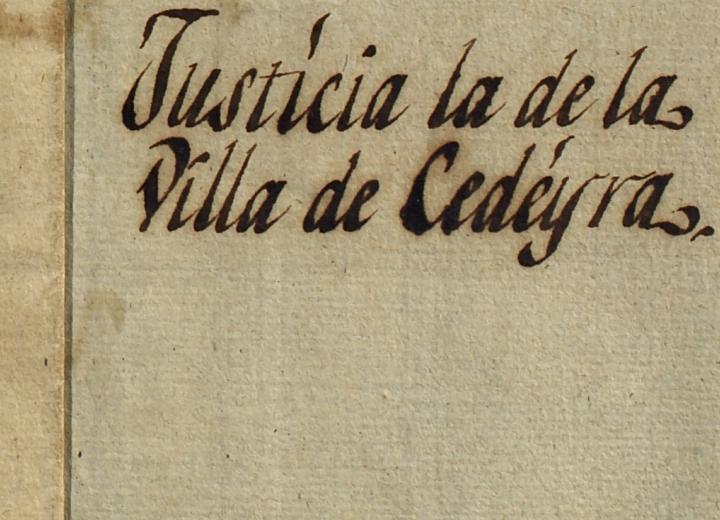 Justicia la de la
Villa de Cedéyra.